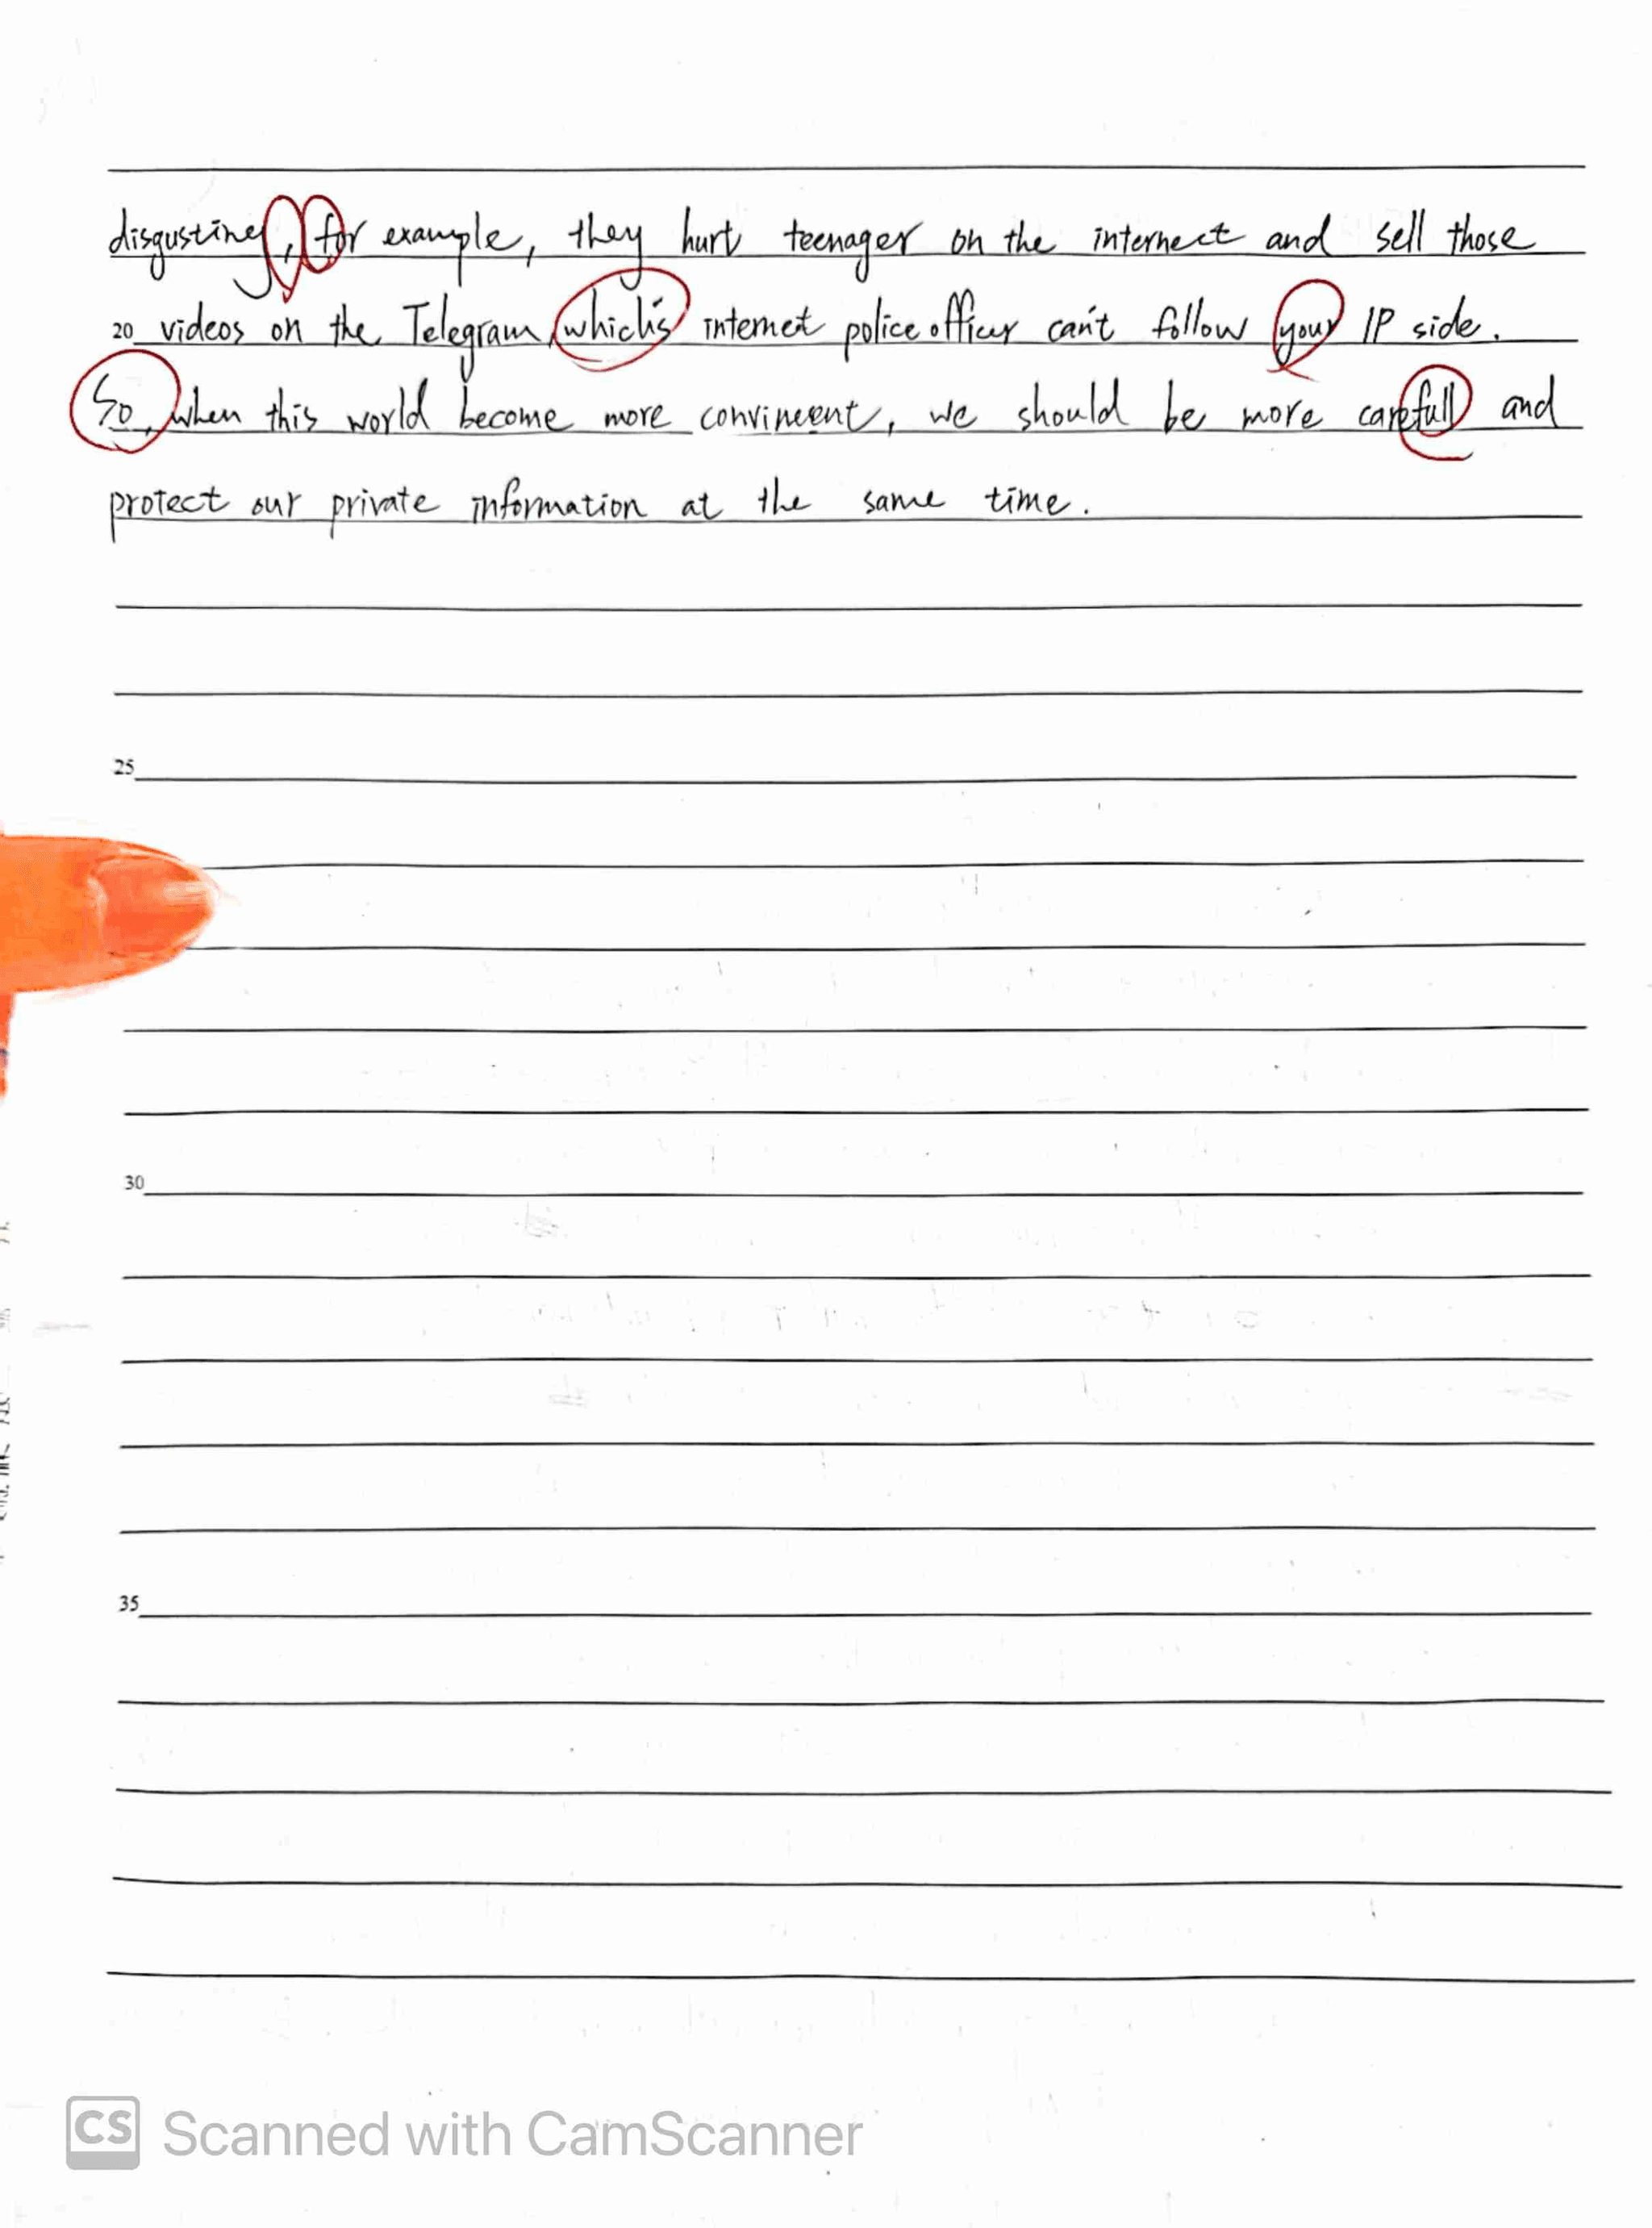 disgusting, for example, they hurt teenager on the internect and sell those
20 videos on the Telegram, which's internet police officer can't follow your IP side.
So, when this world become more convincent, we should be more carefull and
protect our private information at the same time.
25
30
35
CS Scanned with CamScanner